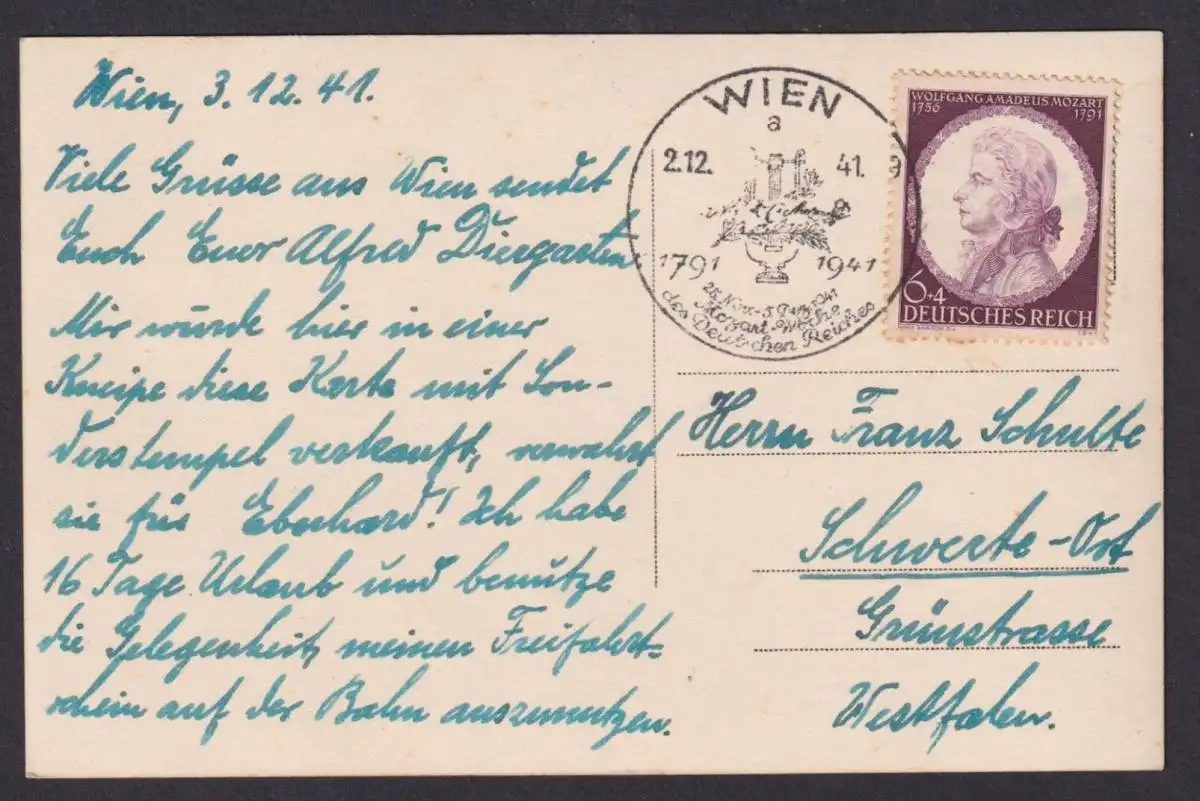 Wien, 3.12.41.
Viele Grüsse aus Wien sendet
Euch Euer Alfred Diergarten
Mir wurde hier in einer
Kneipe diese Karte mit Son-
derstempel verkauft, verwahrt
sie für Eberhard! Ich habe
16 Tage Urlaub und benutze
die Gelegenheit, meinen Freifahrt-
schein auf der Bahn auszunutzen.
WIEN
a
2.12. 41.
1791 1941
Mozart-Woche
des Deutschen Reiches
WOLFGANG AMADEUS MOZART
1756 1791
6+4
DEUTSCHES REICH
Herrn Franz Schulte
Schwerte-Ost
Grünstrasse
Westfalen.